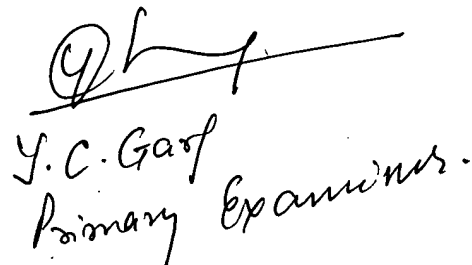 Y. C. Garg
Primary Examiner.